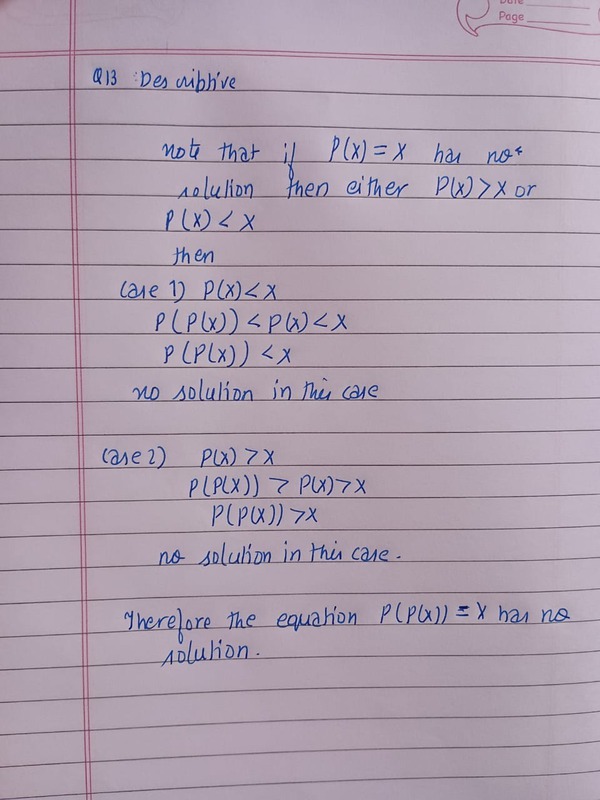 Date
Page
Q13 Descriptive
note that if P(x) = x has not
solution then either P(x) > x or
P(x) < x
then
Case 1) P(x) < x
P(P(x)) < P(x) < x
P(P(x)) < x
no solution in this case
Case 2) P(x) > x
P(P(x)) > P(x) > x
P(P(x)) > x
no solution in this case.
Therefore the equation P(P(x)) = x has no
solution.